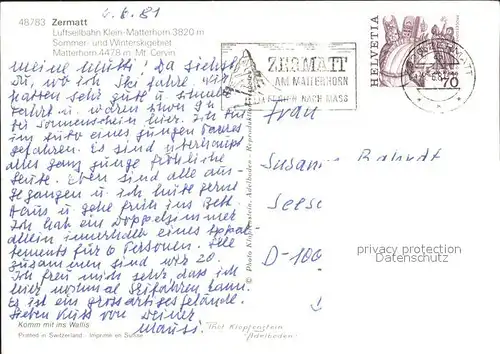 4.6.81
48783 Zermatt
Luftseilbahn Klein-Matterhorn 3820 m
Sommer- und Winterskigebiet
Matterhorn 4478 m Mt. Cervin
meine Mutti! Da siehst
Du, wo ich Ski fahre. Wir
hatten sehr gute u. schnelle
Fahrt u. waren zwei
bei Sonnenschein hier. Ich bin
im Auto eines jungen Paares
gefahren. Es sind überhaupt
alles ganz junge fröhliche
Leute. Eben sind alle aus-
gegangen u. ich hüte gern
Haus u. gehe früh ins Bett.
Ich hab ein Doppelzimmer
allein innerhalb eines Appar-
tements für 6 Personen. Alle
zusammen sind wir 20.
Ich freu mich sehr, dass ich
hier nochmal Skifahren kann.
Es ist ein grossartiges Gelände.
Lieben Kuss von Deiner
Mausi.
Komm mit ins Wallis
Printed in Switzerland - Imprimé en Suisse
© Photo Klopfenstein, Adelboden - Reproduktion
Thöl Klopfenstein
Adelboden
ZERMATT
AM MATTERHORN
FERIEN NACH MASS
HELVETIA
70
ZERMATT
Frau
Susan
Seese
D-100
privacy protection
VERSANDHANDEL